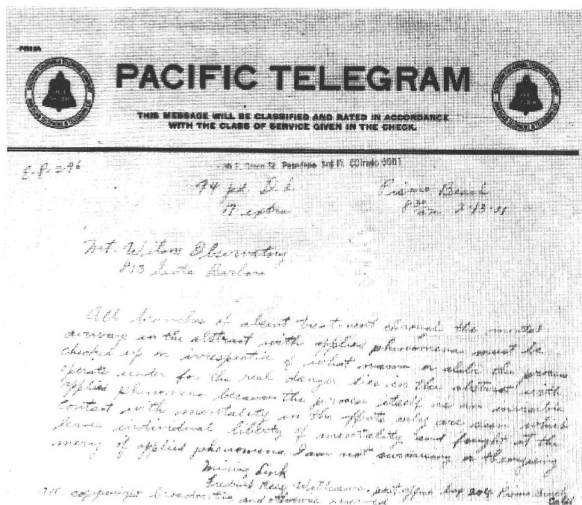 PACIFIC TELEGRAM
THIS MESSAGE WILL BE CLASSIFIED AND RATED IN ACCORDANCE
WITH THE CLASS OF SERVICE GIVEN IN THE CHECK.
Green St. Pasadena
94 pd D.L. Pismo Beach
17 extra 8 30 am 2-13-31
Mt. Wilson Observatory
813 Santa Barbara
All branches of absent treatment through the mental
airways in the abstract with applied phenomena must be
checked up on irrespective of what name or alibi the process
operate under for the real danger lies in the abstract with
applied phenomena because the process itself is an invisible
contact with mentality in the effects only are seen which
leave individual liberty of mentality and thought at the
mercy of applied phenomena I am not swimming or theorizing
Missing Link
Fredrick post office box Pismo Beach
Calif
All copyright broadcasting and otherwise reserved